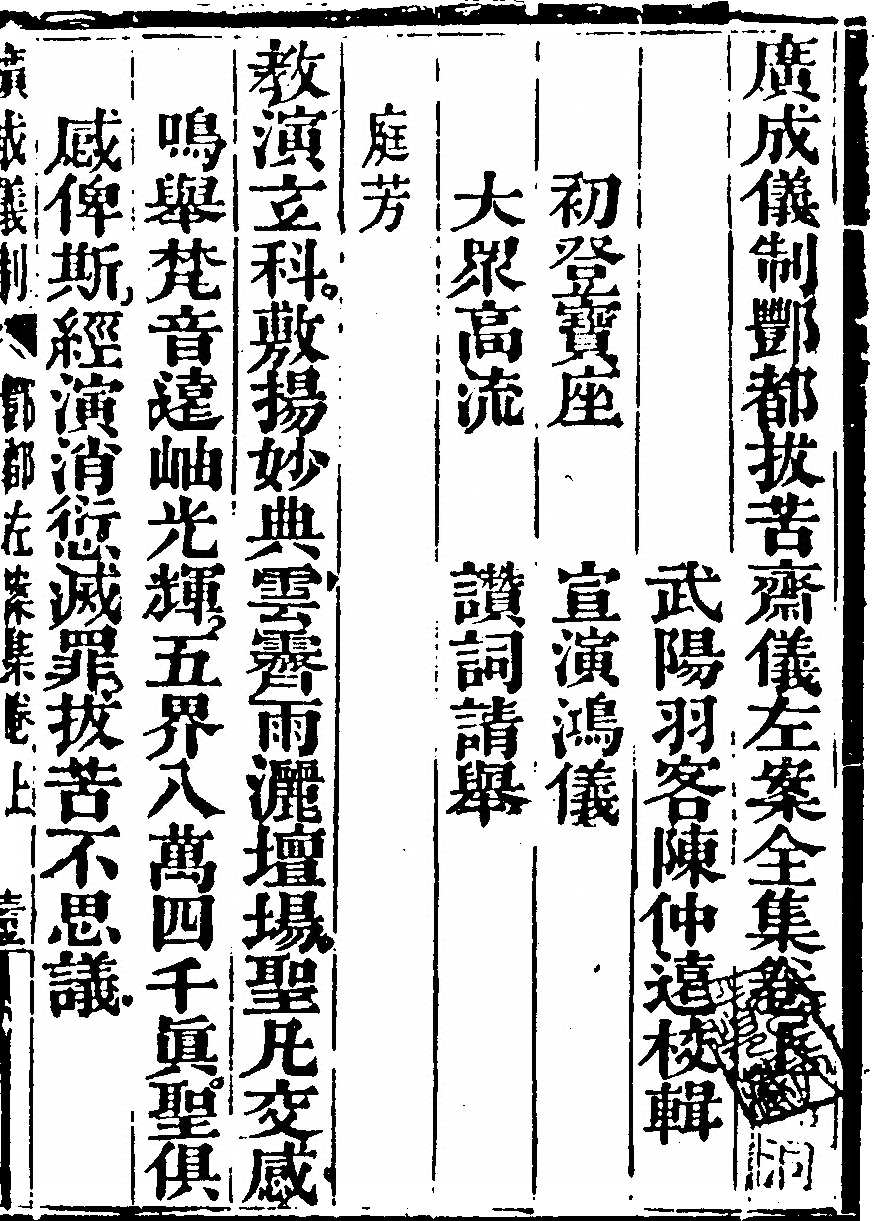 廣成儀制酆都拔苦齋儀左案全集卷上
武陽羽客陳仲遠校輯
初登寶座　宣演鴻儀
大眾高流　讚詞請舉
庭芳
教演立科。敷揚妙典雲霽雨灑壇場。聖凡交感
鳴舉梵音達岫光輝。五界八萬四千眞。聖俱
感俾斯，經演消愆滅罪。拔苦不思議。
廣成儀制　酆都左案集卷上　壹